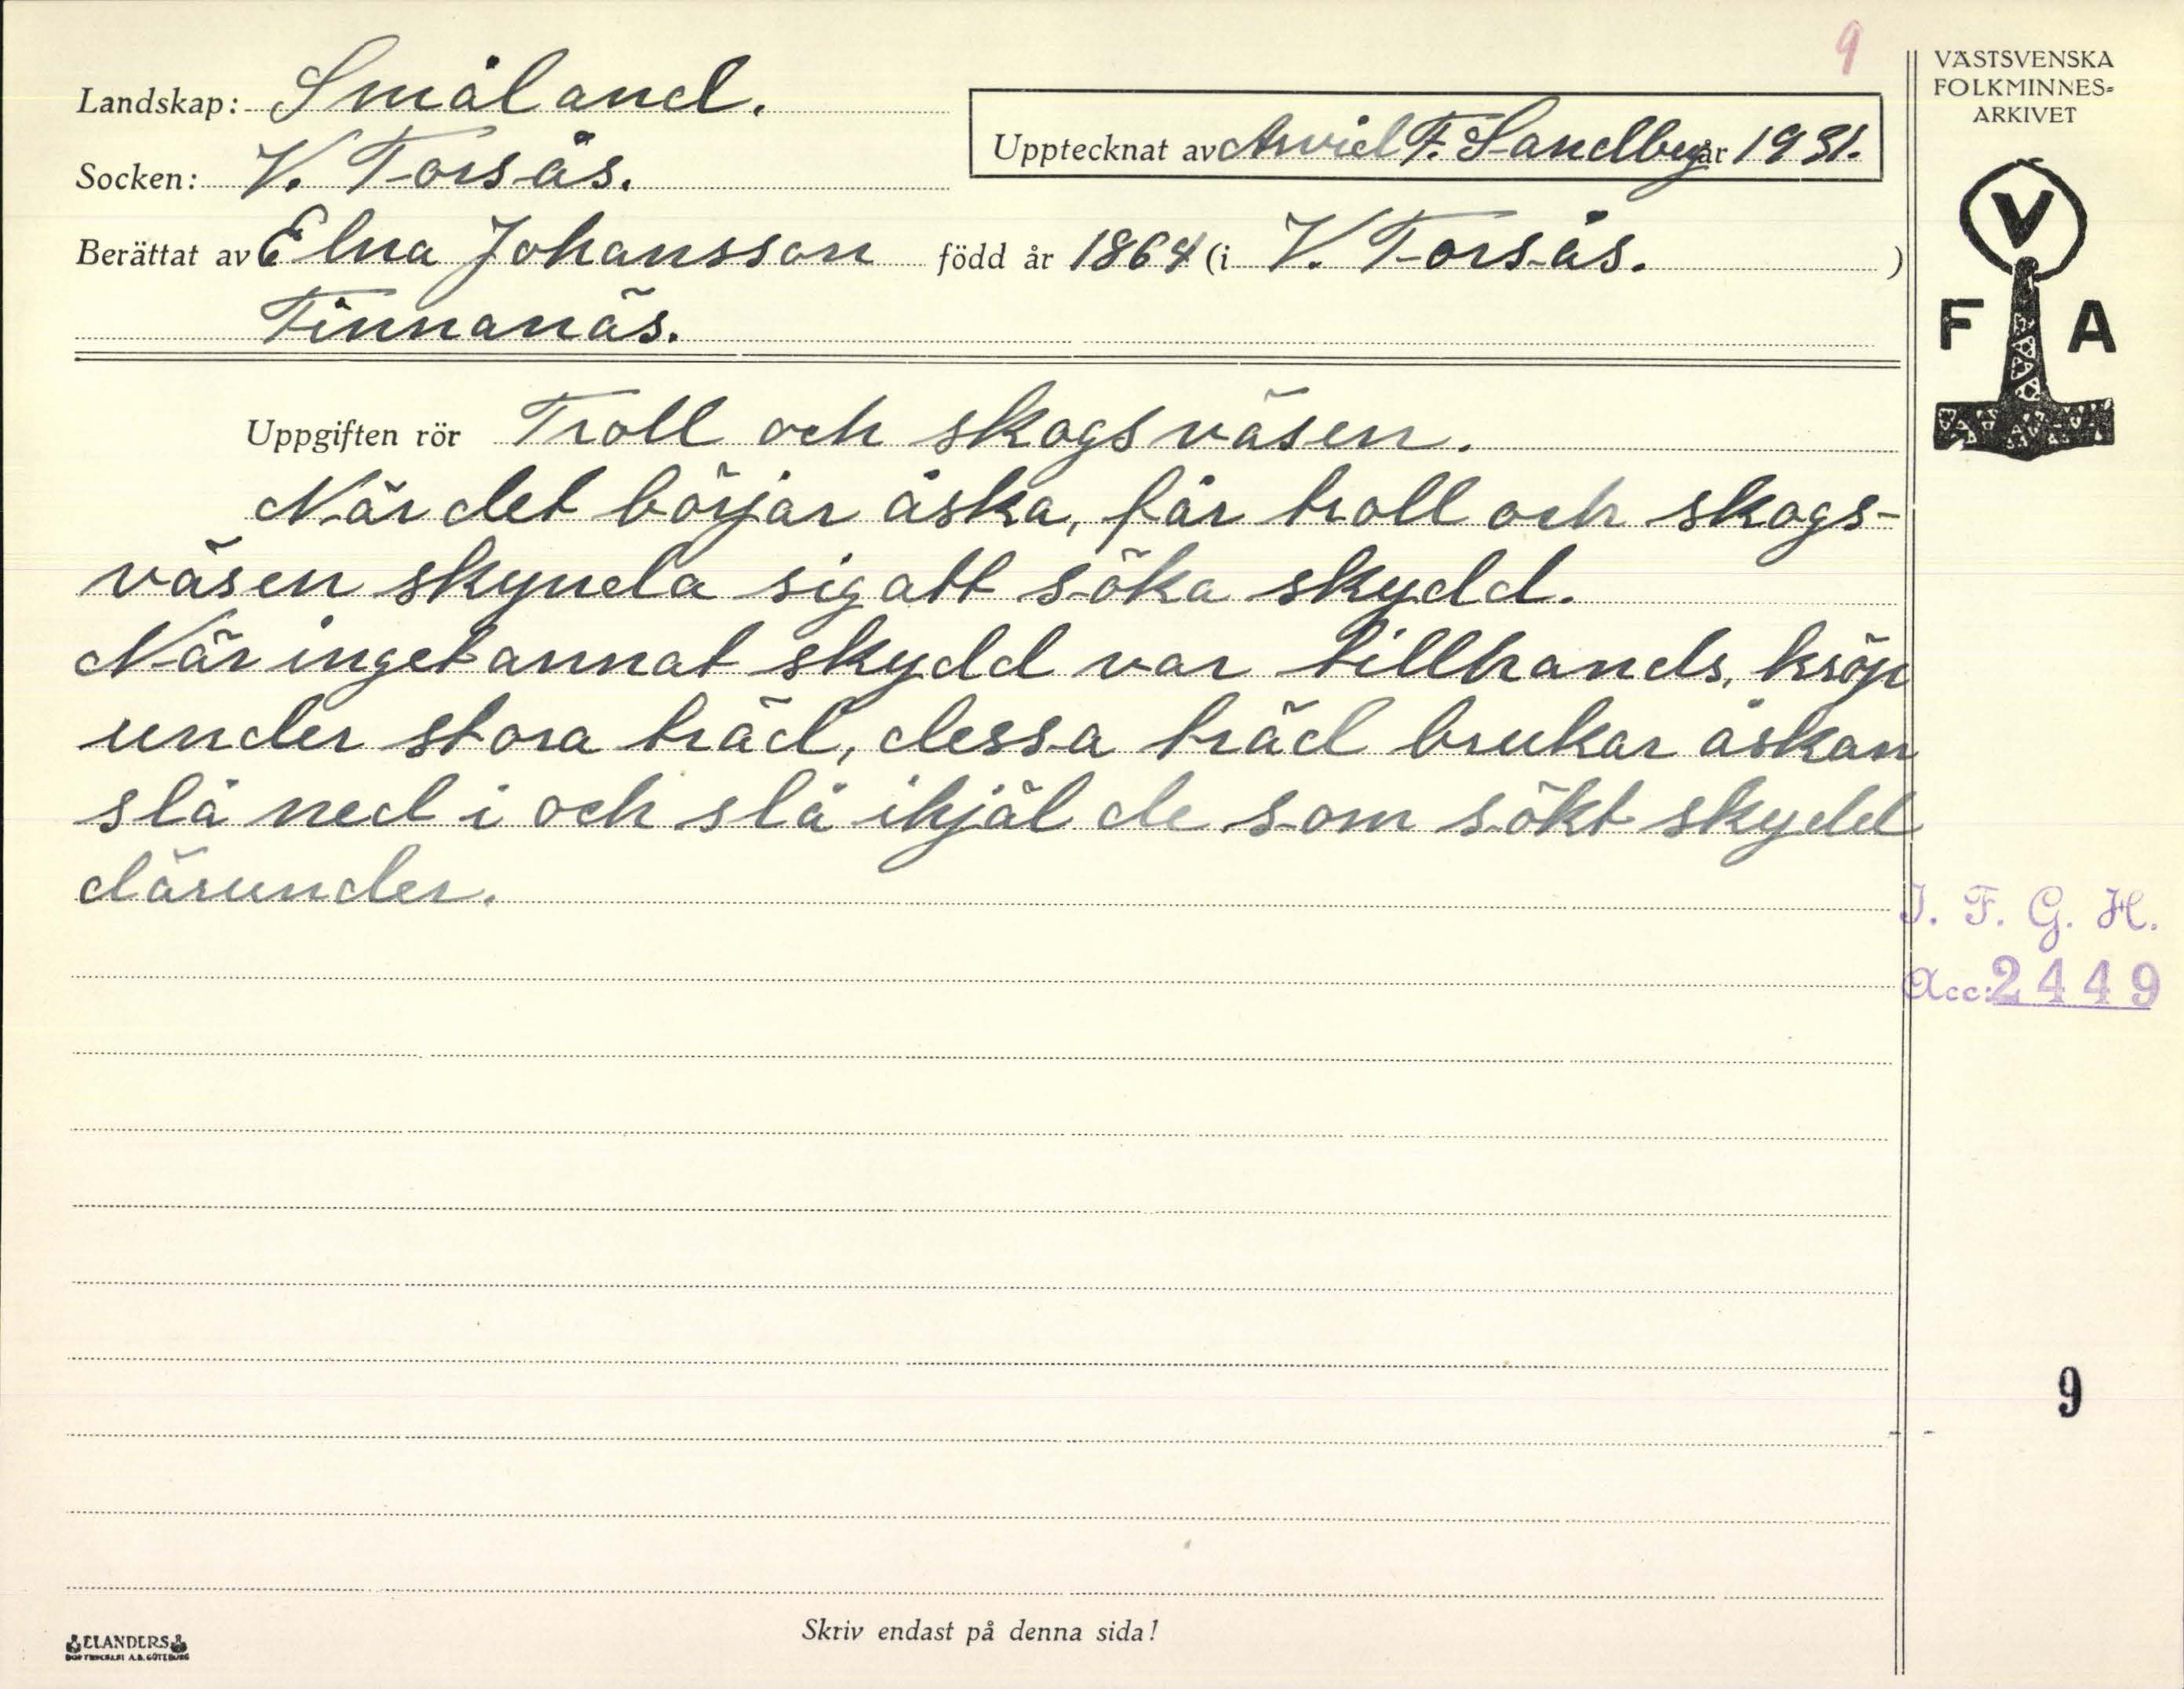 9
Landskap: Småland.
Socken: V. Torsås.
Upptecknat av Arvid F. Sandberg år 1931.
Berättat av Elna Johansson född år 1864 (i V. Torsås. )
Tinnanäs.
Uppgiften rör Troll och skogsväsen.
När det börjar åska, får troll och skogs-
väsen skynda sig att söka skydd.
När inget annat skydd var tillhands, kröp
under stora träd, dessa träd brukar åskan
slå ned i och slå ihjäl de som sökt skydd
därunder.
VÄSTSVENSKA
FOLKMINNES-
ARKIVET
V
F A
I. F. G. H.
Acc: 2449
9
Skriv endast på denna sida!
ELANDERS
BOKTRYCKERI A.B. GÖTEBORG